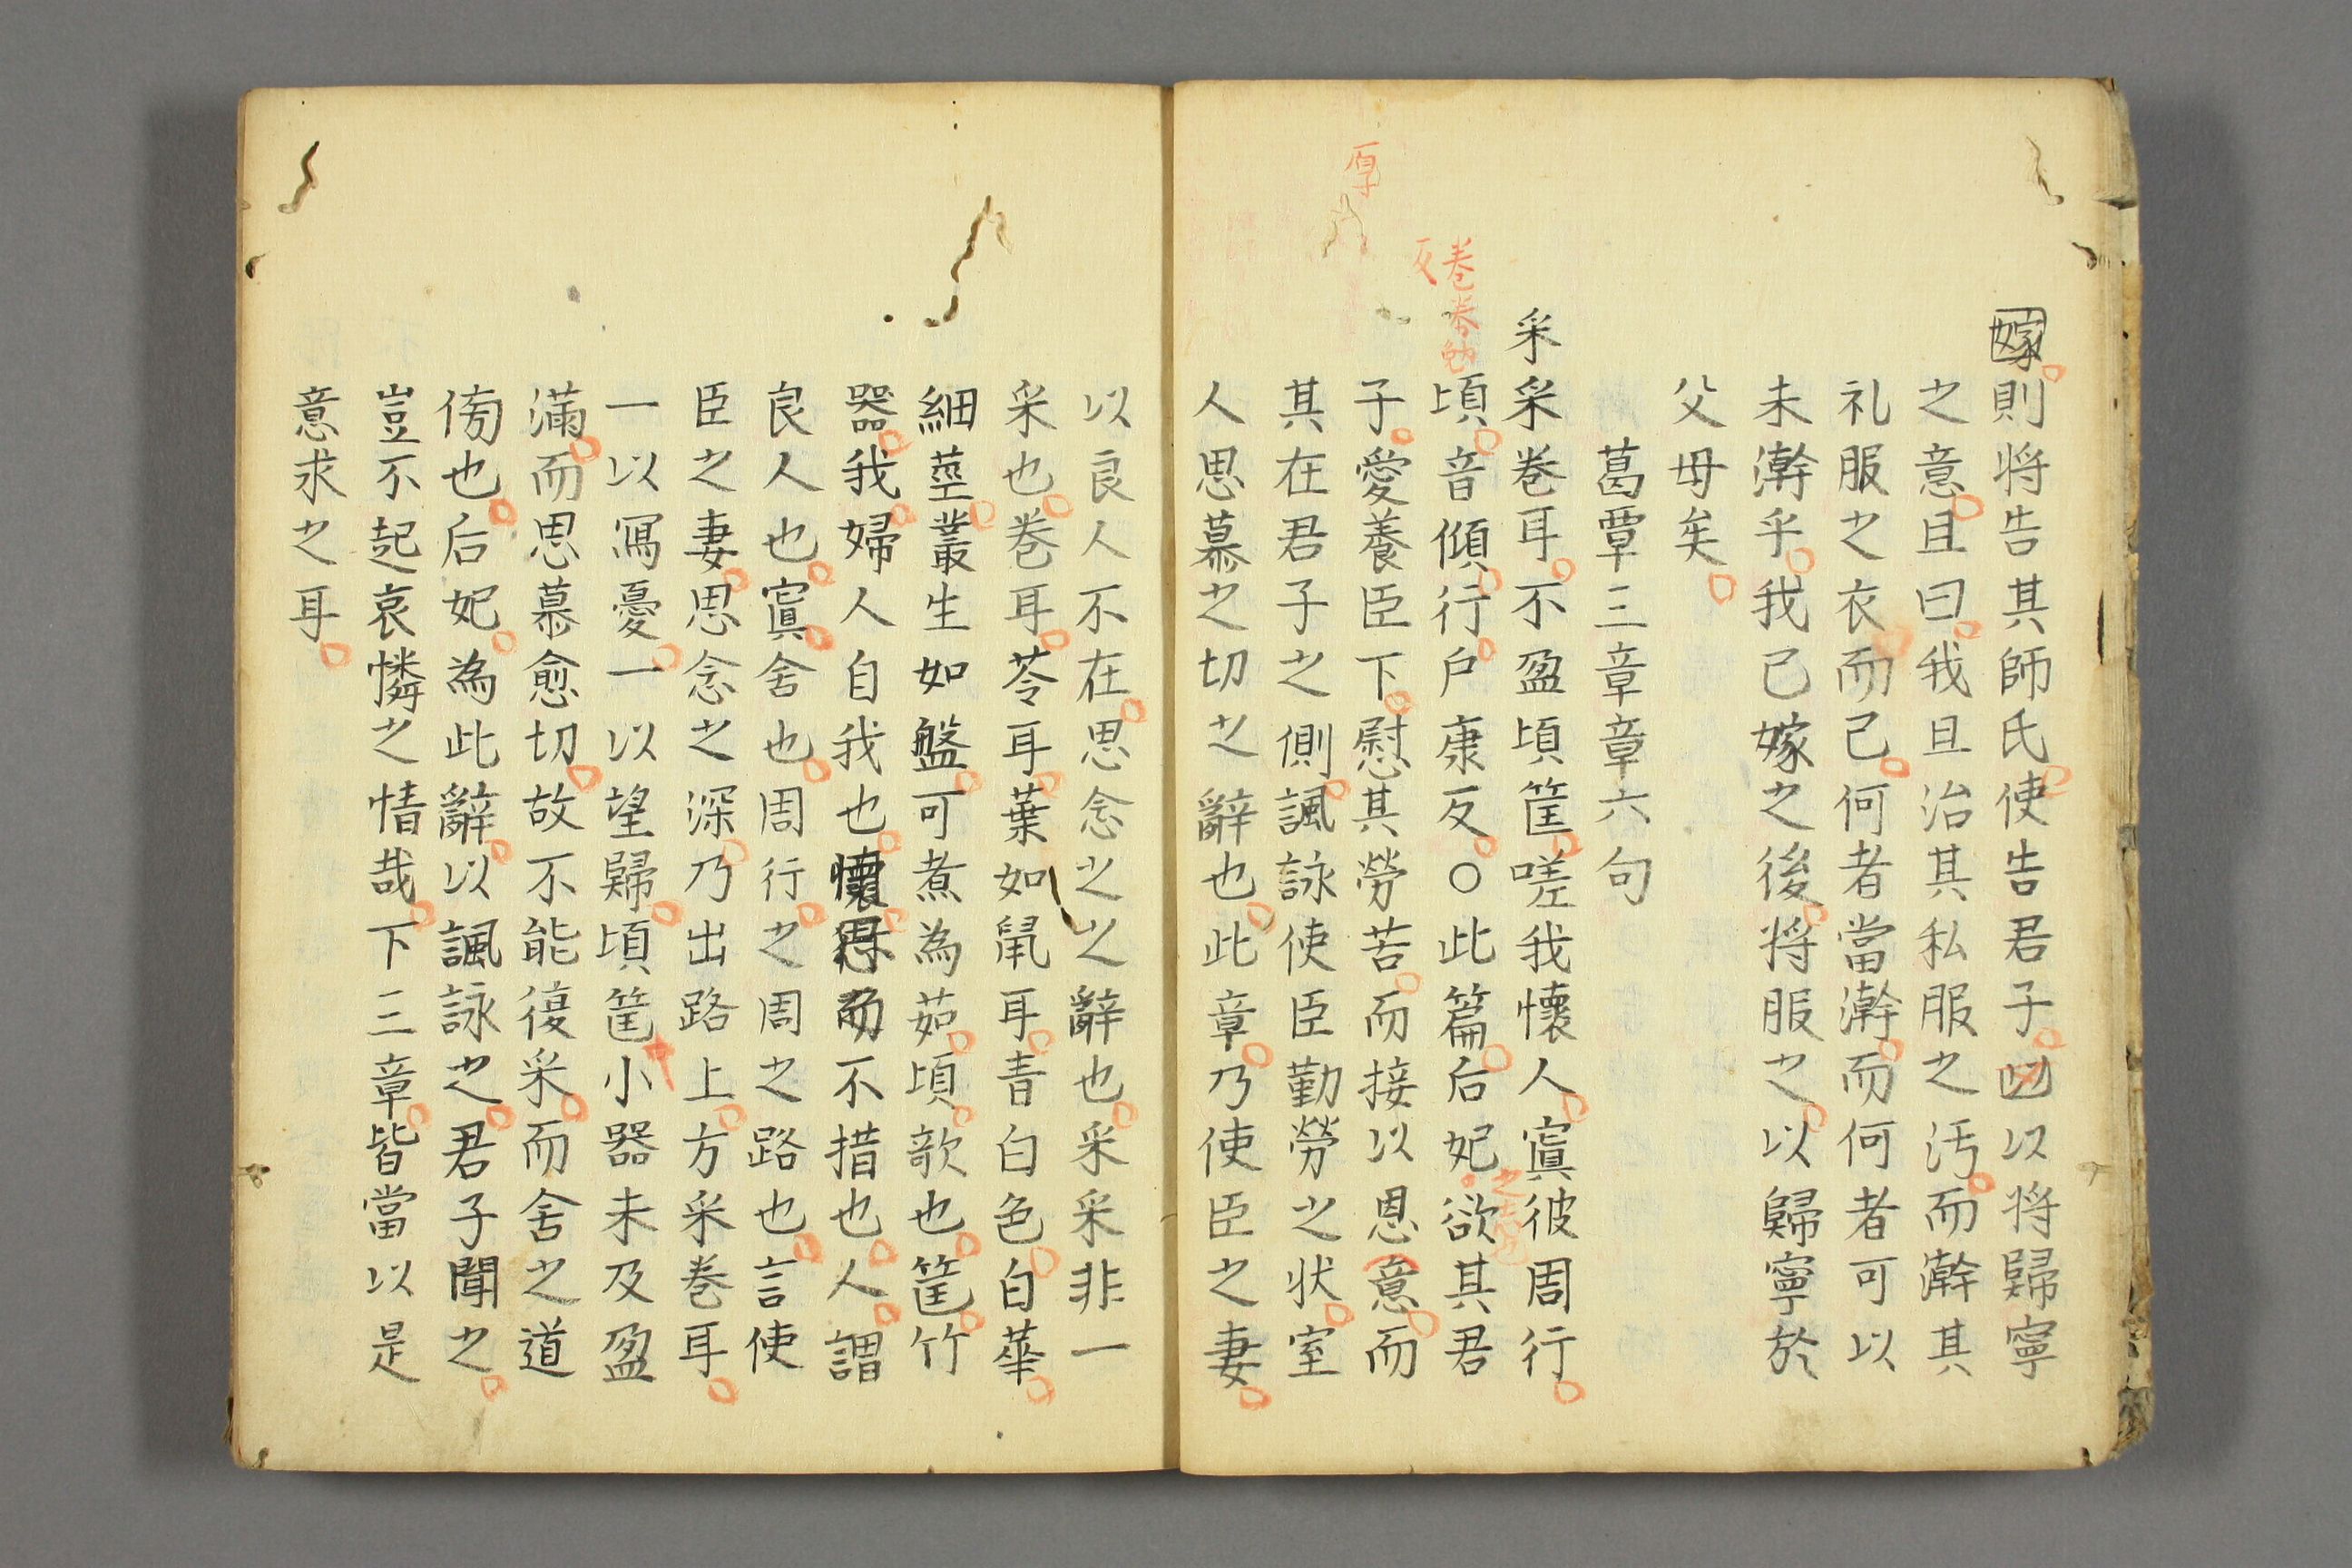 嫁則将告其師氏使告君子以将歸寧
之意且曰我且治其私服之汚而澣其
礼服之衣而已何者當澣而何者可以
未澣乎我已嫁之後将服之以歸寧於
父母矣
葛覃三章章六句
采采卷耳不盈頃筐嗟我懷人寘彼周行
卷卷勉
反
頃音傾行户康反○此篇后妃欲其君
厚
子愛養臣下慰其勞苦而接以恩意而
其在君子之側諷詠使臣勤勞之状室
人思慕之切之辭也此章乃使臣之妻
以良人不在思念之之辭也采采非一
采也卷耳苓耳葉如鼠耳青白色白華
細莖叢生如盤可煮為茹頃欹也筐竹
器我婦人自我也懷思而不措也人謂
良人也寘舍也周行之周之路也言使
臣之妻思念之深乃出路上方采卷耳
一以寫憂一以望歸頃筐小器未及盈
滿而思慕愈切故不能復采而舍之道
傍也后妃為此辭以諷詠之君子聞之
豈不起哀憐之情哉下三章皆當以是
意求之耳